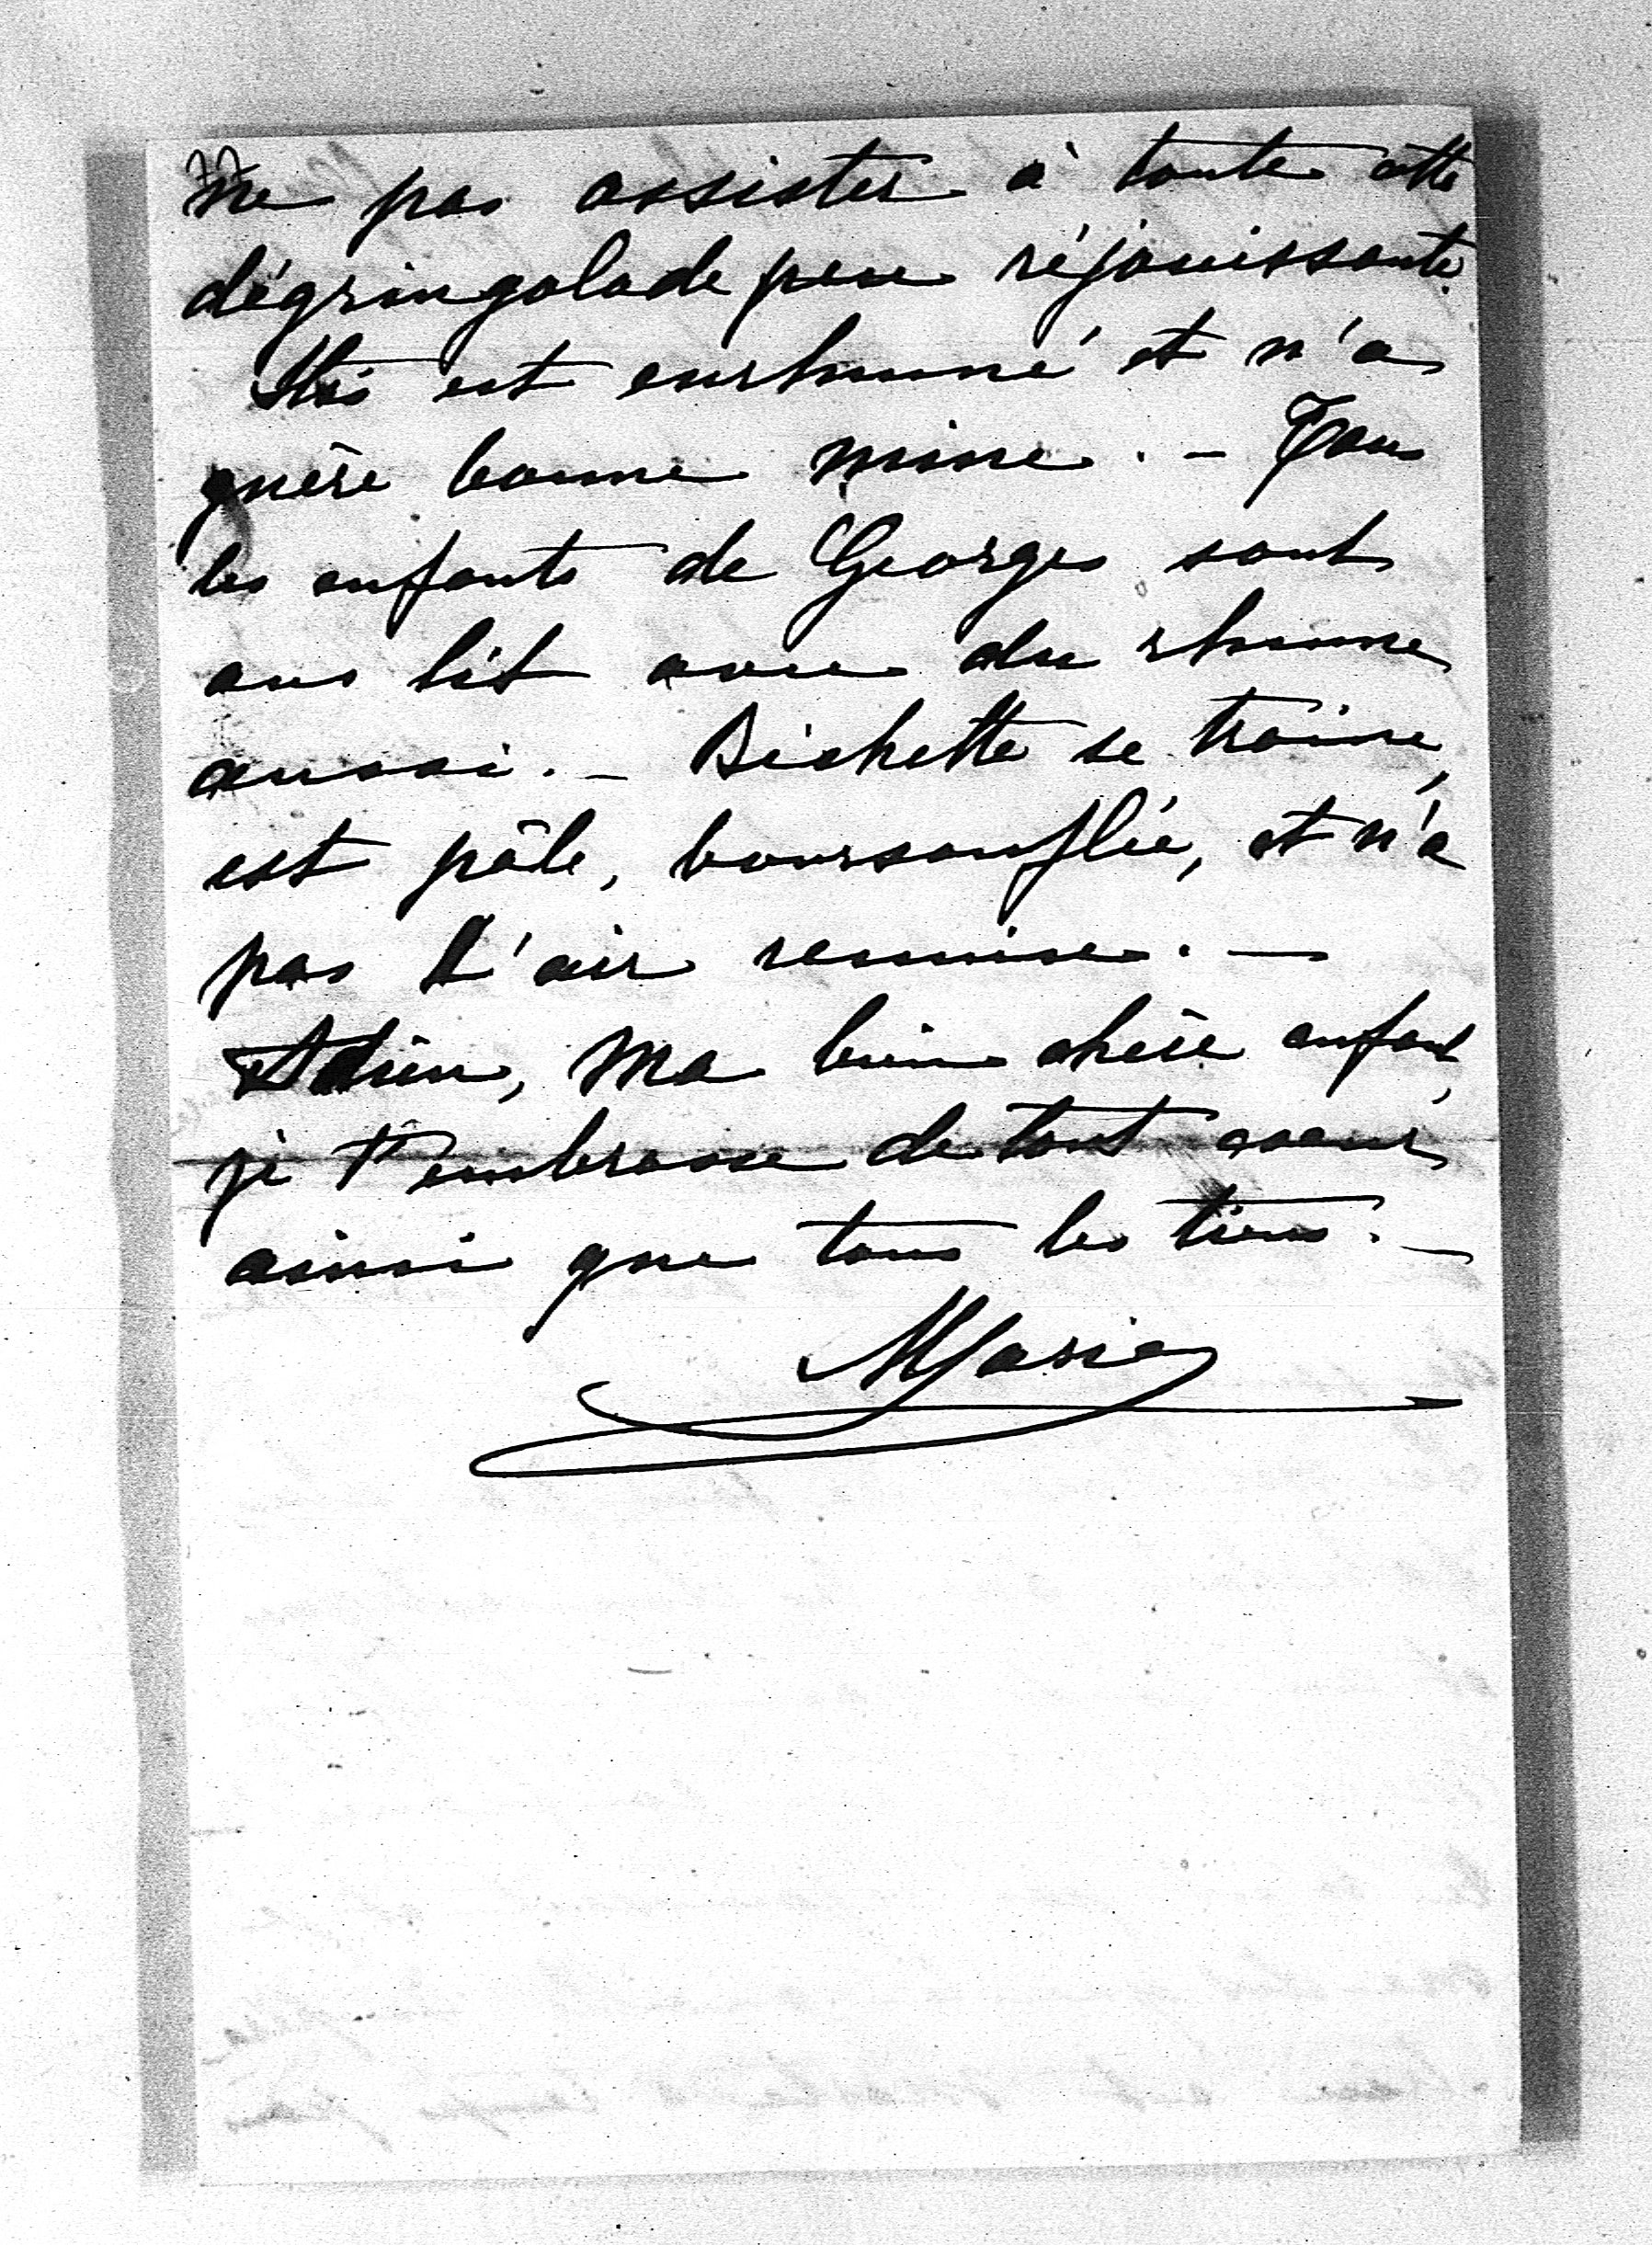 77
ne pas assister à toute cette
dégringolade peu réjouissante.
est enrhumé et n'a
guère bonne mine. - Tous
les enfants de Georges sont
au lit avec du rhume
aussi. - Bichette se traine,
est pâle, boursouflée, et n'a
pas l'air remise. -
Adieu, ma bien chère enfant,
je t'embrasse de tout coeur,
ainsi que tous les tiens. -
Marie